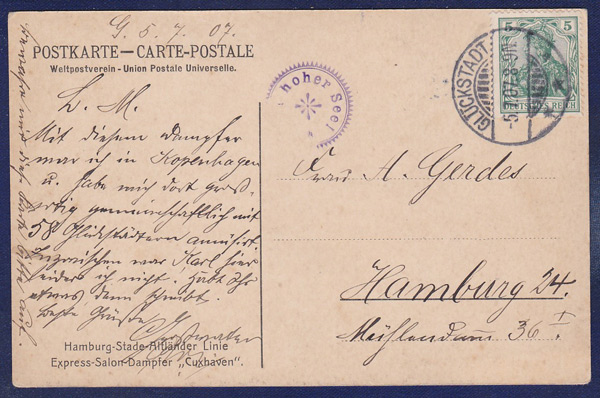 G. 5. 7. 07.
POSTKARTE — CARTE-POSTALE
Weltpostverein - Union Postale Universelle.
L. M.
Mit diesem Dampfer
war ich in Kopenhagen
u. habe mich dort groß-
artig gemeinschaftlich mit
58 Glückstädtern amüsirt.
Inzwischen war Karl hier
leider ich nicht. Habt Ihr
etwas, dann schreibt.
Beste Grüße
Hamburg-Stade-Altländer Linie
Express-Salon-Dampfer „Cuxhaven".
hoher See!
GLÜCKSTADT
5.7.07. 8-9N.
5
5
DEUTSCHES REICH
Frau A. Gerdes
Hamburg 24.
Mühlendamm 36 I